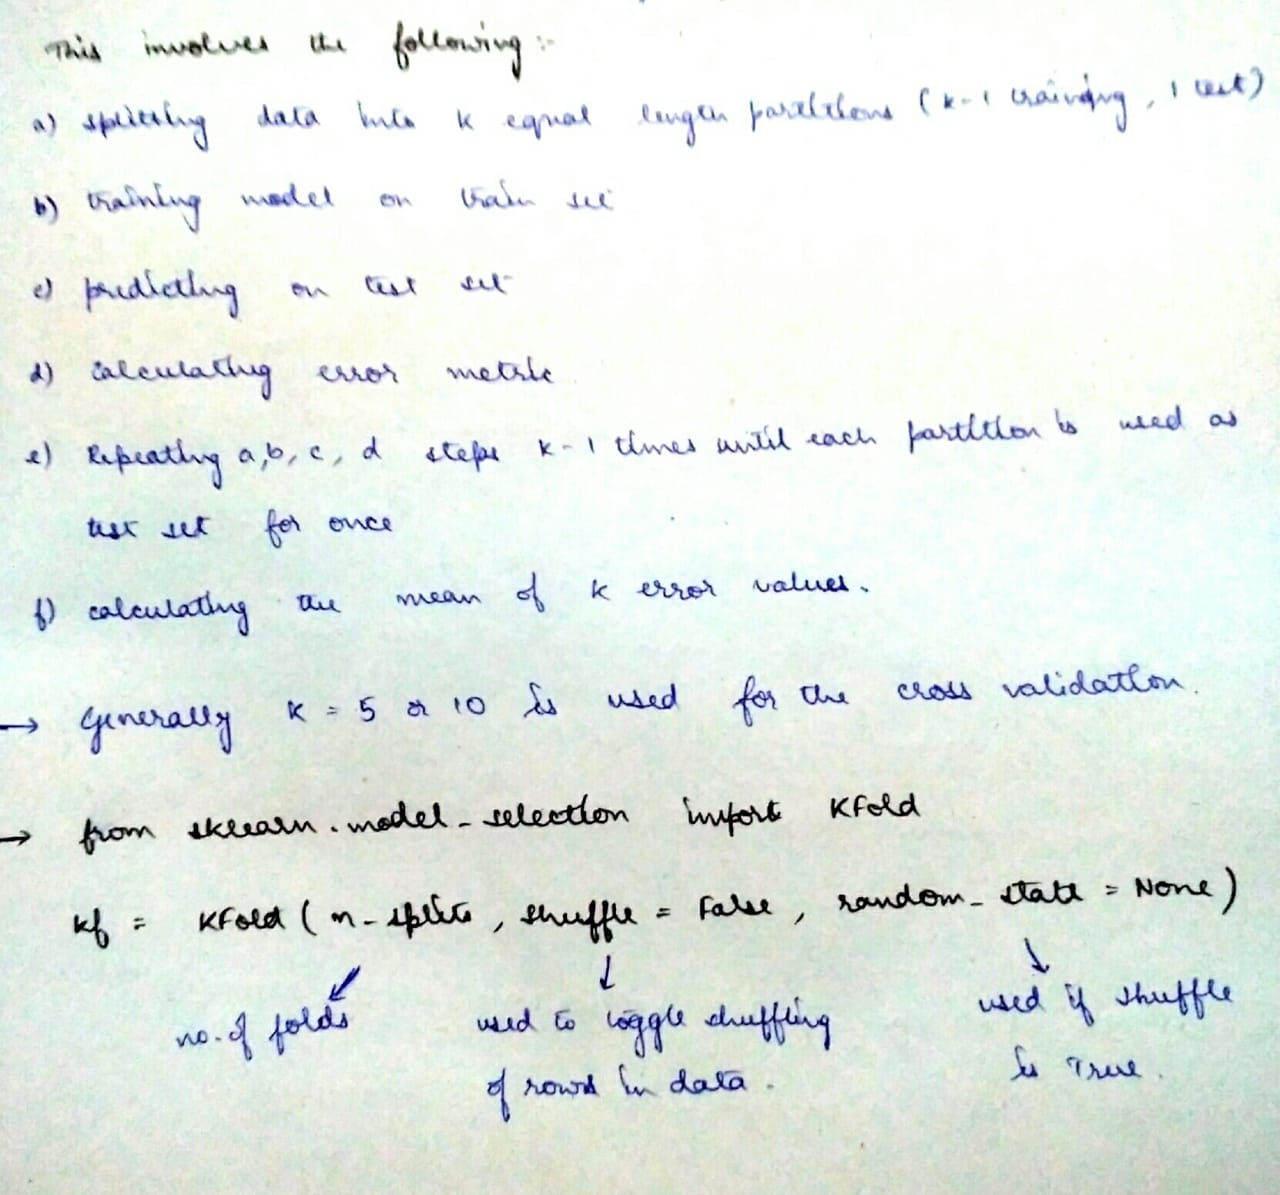 This involves the following :-
a) splitting data into k equal length partitions (k-1 training, 1 test)
b) training model on train set
c) predicting on test set
d) calculating error metric
e) Repeating a,b, c, d steps k-1 times until each partition is used as
test set for once
f) calculating the mean of k error values.
→ Generally K = 5 or 10 is used for the cross validation.
→ from sklearn.model_selection import KFold
kf = KFold ( n_splits , shuffle = False , random_state = None )
no. of folds
used to toggle shuffling
of rows in data.
used if shuffle
is True.